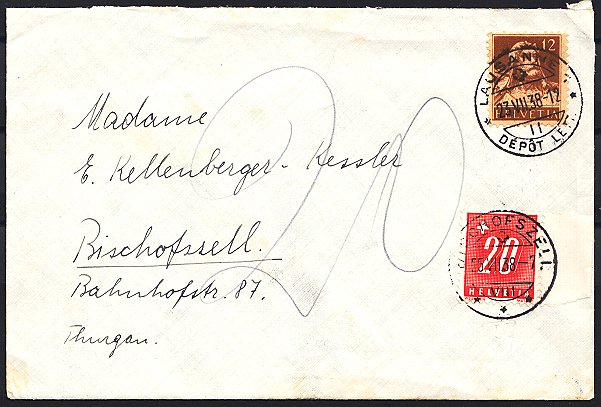 12
LAUSANNE 1
23.VII.38-12
11
DÉPÔT LET.
HELVETIA
Madame
E. Kellenberger-Kessler
Bischofszell.
Bahnhofstr. 87.
Thurgau.
20
BISCHOFSZELL
20
HELVETIA